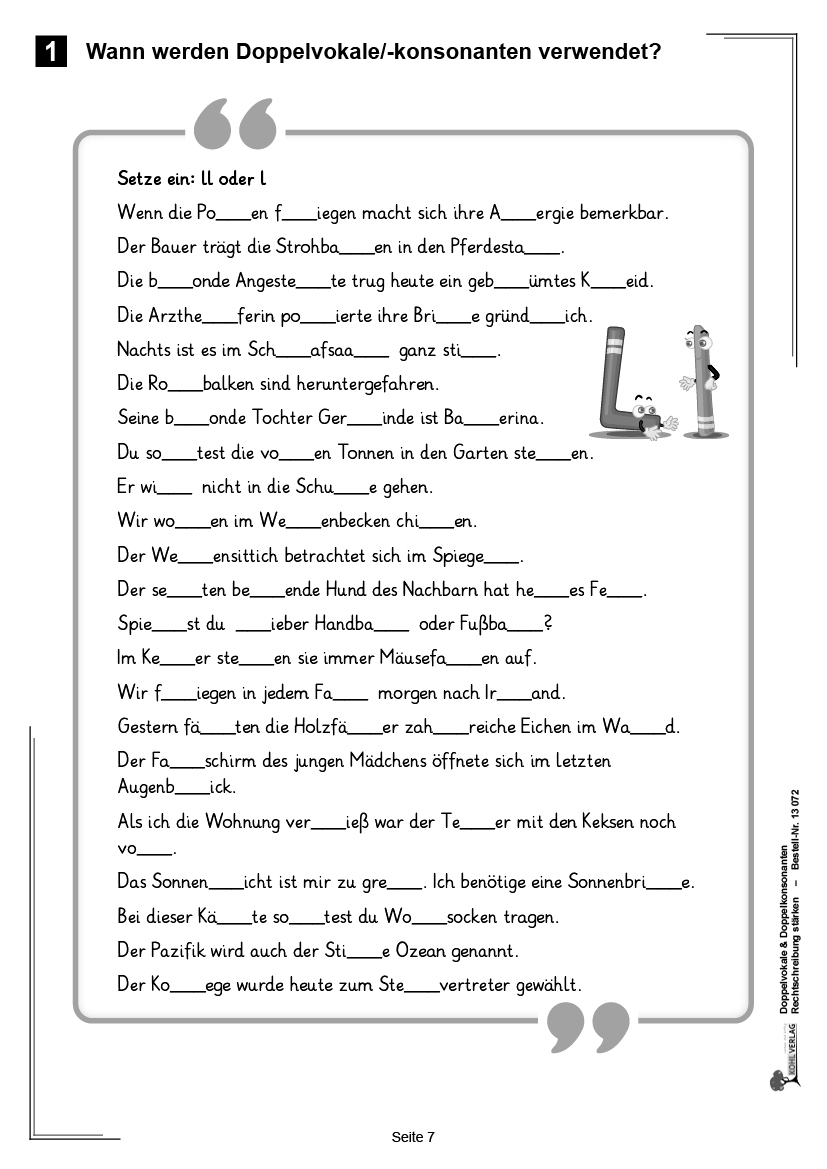 1 Wann werden Doppelvokale/-konsonanten verwendet?
Setze ein: ll oder l
Wenn die Po____en f____iegen macht sich ihre A____ergie bemerkbar.
Der Bauer trägt die Strohba____en in den Pferdesta____.
Die b____onde Angeste____te trug heute ein geb____ümtes K____eid.
Die Arzthe____ferin po____ierte ihre Bri____e gründ____ich.
Nachts ist es im Sch____afsaa____ ganz sti____.
Die Ro____balken sind heruntergefahren.
Seine b____onde Tochter Ger____inde ist Ba____erina.
Du so____test die vo____en Tonnen in den Garten ste____en.
Er wi____ nicht in die Schu____e gehen.
Wir wo____en im We____enbecken chi____en.
Der We____ensittich betrachtet sich im Spiege____.
Der se____ten be____ende Hund des Nachbarn hat he____es Fe____.
Spie____st du ____ieber Handba____ oder Fußba____?
Im Ke____er ste____en sie immer Mäusefa____en auf.
Wir f____iegen in jedem Fa____ morgen nach Ir____and.
Gestern fä____ten die Holzfä____er zah____reiche Eichen im Wa____d.
Der Fa____schirm des jungen Mädchens öffnete sich im letzten
Augenb____ick.
Als ich die Wohnung ver____ieß war der Te____er mit den Keksen noch
vo____.
Das Sonnen____icht ist mir zu gre____. Ich benötige eine Sonnenbri____e.
Bei dieser Kä____te so____test du Wo____socken tragen.
Der Pazifik wird auch der Sti____e Ozean genannt.
Der Ko____ege wurde heute zum Ste____vertreter gewählt.
Doppelvokale & Doppelkonsonanten
Rechtschreibung stärken – Bestell-Nr. 13 072
KOHL VERLAG
Seite 7